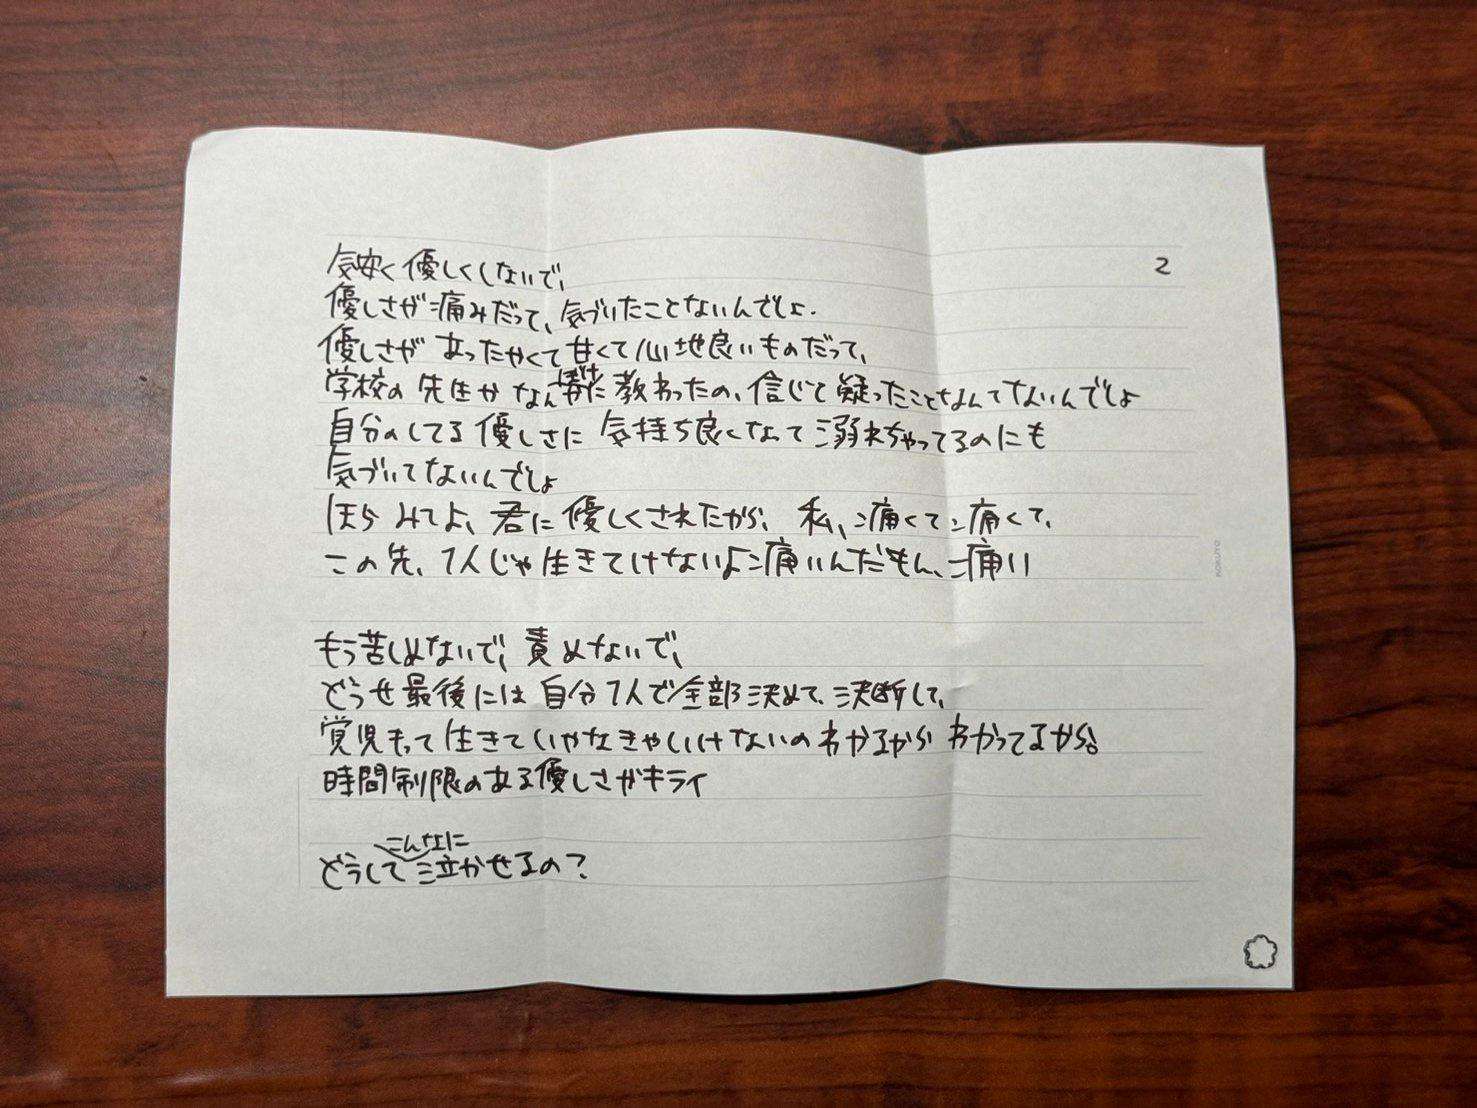 2
気安く優しくしないで、
優しさが痛みだって、気づいたことないんでしょ.
優しさがあったかくて甘くて心地良いものだって、
学校の先生かなんかに教わったの、信じて疑ったことなんてないんでしょ
自分のしてる優しさに気持ち良くなって溺れちゃってるのにも
気づいてないんでしょ
ほらみてよ、君に優しくされたから、私、痛くて痛くて、
この先、1人じゃ生きてけないよ痛いんだもん、痛い
もう苦しめないで、責めないで、
どうせ最後には自分1人で全部決めて、決断して、
覚児もって生きていかなきゃいけないのわかるからわかってるから。
時間制限のある優しさがキライ
こんなに
どうして泣かせるの?